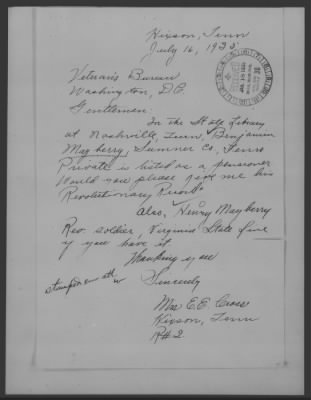 Hixson, Tenn
July 16, 1935.
Veterans Bureau
Washington, D.C.
Gentlemen:
In the State Library
at Nashville, Tenn, Benjamin
Mayberry, Sumner Co, Tenn
Private is listed as a pensioner
Would you please give me his
Revolutionary Record
Also, Henry Mayberry
Rev. soldier, Virginia State Line
if you have it
Thanking you
Sincerely
Mrs E.E. Cross
Hixson, Tenn
R#2.